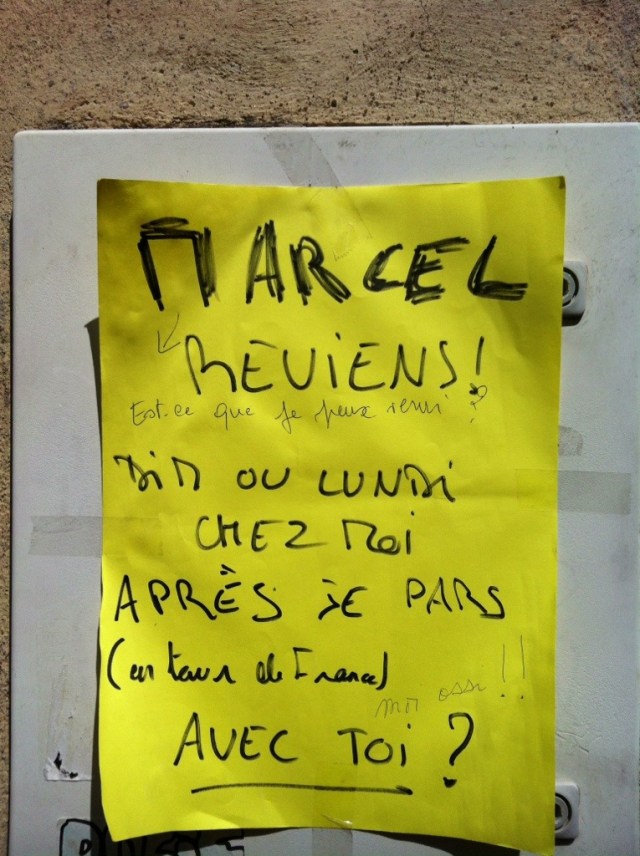 MARCEL
REVIENS!
Est-ce que je peux venir ?
DIM OU LUNDI
CHEZ MOI
APRÈS JE PARS
(en tour de France)
moi ossi !!
AVEC TOI ?